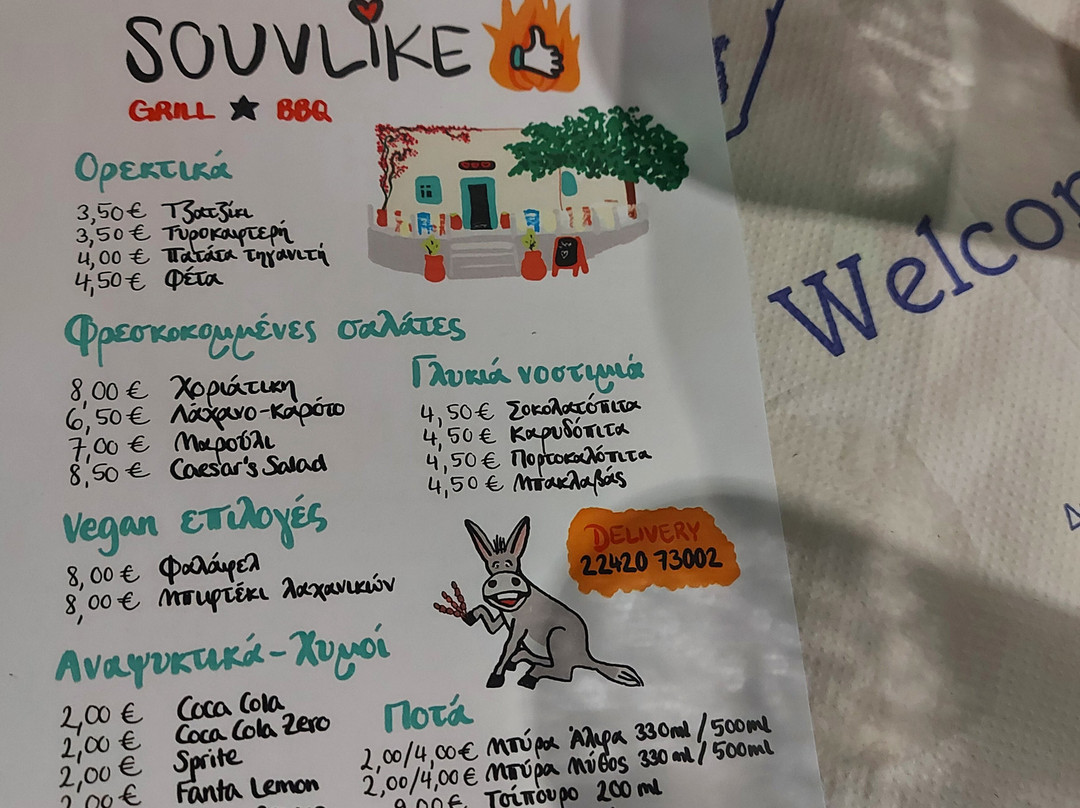 SOUVLIKE
GRILL ★ BBQ
Ορεκτικά
3,50 € Τζατζίκι
3,50 € Τυροκαυτερή
4,00 € Πατάτα τηγανιτή
4,50 € Φέτα
Φρεσκοκομμένες σαλάτες
8,00 € Χοριάτικη
6,50 € Λάχανο-καρότο
7,00 € Μαρούλι
8,50 € Caesar's Salad
Γλυκιά νοστιμιά
4,50 € Σοκολατόπιτα
4,50 € Καρυδόπιτα
4,50 € Πορτοκαλόπιτα
4,50 € Μπακλαβάς
Vegan επιλογές
8,00 € Φαλάφελ
8,00 € Μπιφτέκι λαχανικών
DELIVERY
22420 73002
Αναψυκτικά-Χυμοί
2,00 € Coca Cola
2,00 € Coca Cola Zero
2,00 € Sprite
2,00 € Fanta Lemon
Ποτά
2,00/4,00 € Μπύρα Άλφα 330ml/500ml
2,00/4,00 € Μπύρα Μύθος 330ml/500ml
Τσίπουρο 200 ml
Welcom